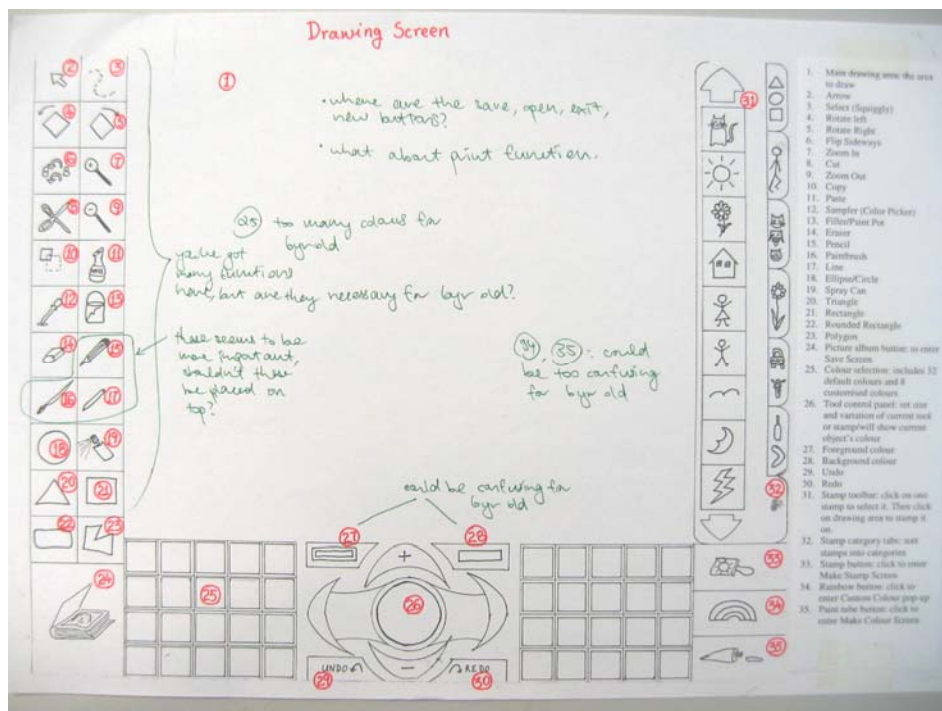 Drawing Screen
1
• where are the save, open, exit,
new buttons?
• what about print function.
25 too many colours for
6yr old
you've got
many functions
here, but are they necessary for 6yr old?
these seems to be
more important,
shouldn't these
be placed on
top?
34, 35 : could
be too confusing
for 6yr old
could be confusing for
6yr old
2
3
4
5
6
7
8
9
10
11
12
13
14
15
16
17
18
19
20
21
22
23
24
25
27
28
+
26
−
UNDO
REDO
29
30
31
32
33
34
35
1. Main drawing area: the area
to draw
2. Arrow
3. Select (Squiggly)
4. Rotate left
5. Rotate Right
6. Flip Sideways
7. Zoom In
8. Cut
9. Zoom Out
10. Copy
11. Paste
12. Sampler (Color Picker)
13. Filler/Paint Pot
14. Eraser
15. Pencil
16. Paintbrush
17. Line
18. Ellipse/Circle
19. Spray Can
20. Triangle
21. Rectangle
22. Rounded Rectangle
23. Polygon
24. Picture album button: to enter
Save Screen
25. Colour selection: includes 32
default colours and 8
customised colours
26. Tool control panel: set size
and variation of current tool
or stamp/will show current
object's colour
27. Foreground colour
28. Background colour
29. Undo
30. Redo
31. Stamp toolbar: click on one
stamp to select it. Then click
on drawing area to stamp it
on.
32. Stamp category tabs: sort
stamps into categories
33. Stamp button: click to enter
Make Stamp Screen
34. Rainbow button: click to
enter Custom Colour pop-up
35. Paint tube button: click to
enter Make Colour Screen